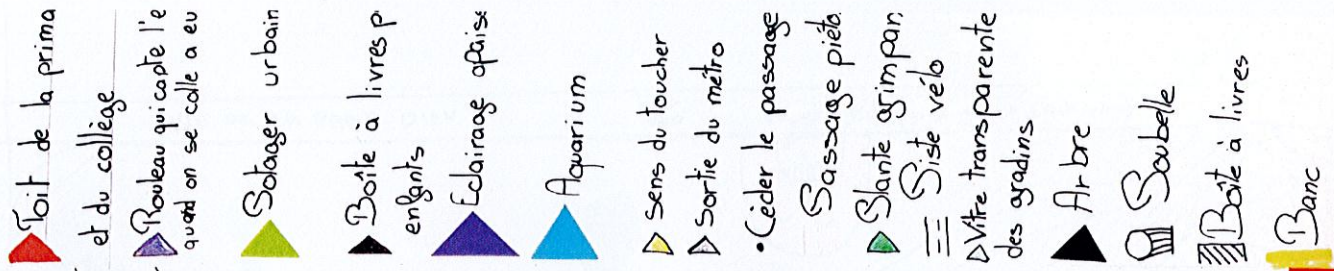 Toit de la prima
et du collège
Rouleau qui capte l'e
quand on se colle a eu
Potager urbain
Boîte à livres p
enfants
Eclairage apaise
Aquarium
Sens du toucher
Sortie du métro
• Céder le passage
Passage piéto
Plante grimpan
Piste vélo
Vitre transparente
des gradins
Arbre
Poubelle
Boîte à livres
Banc